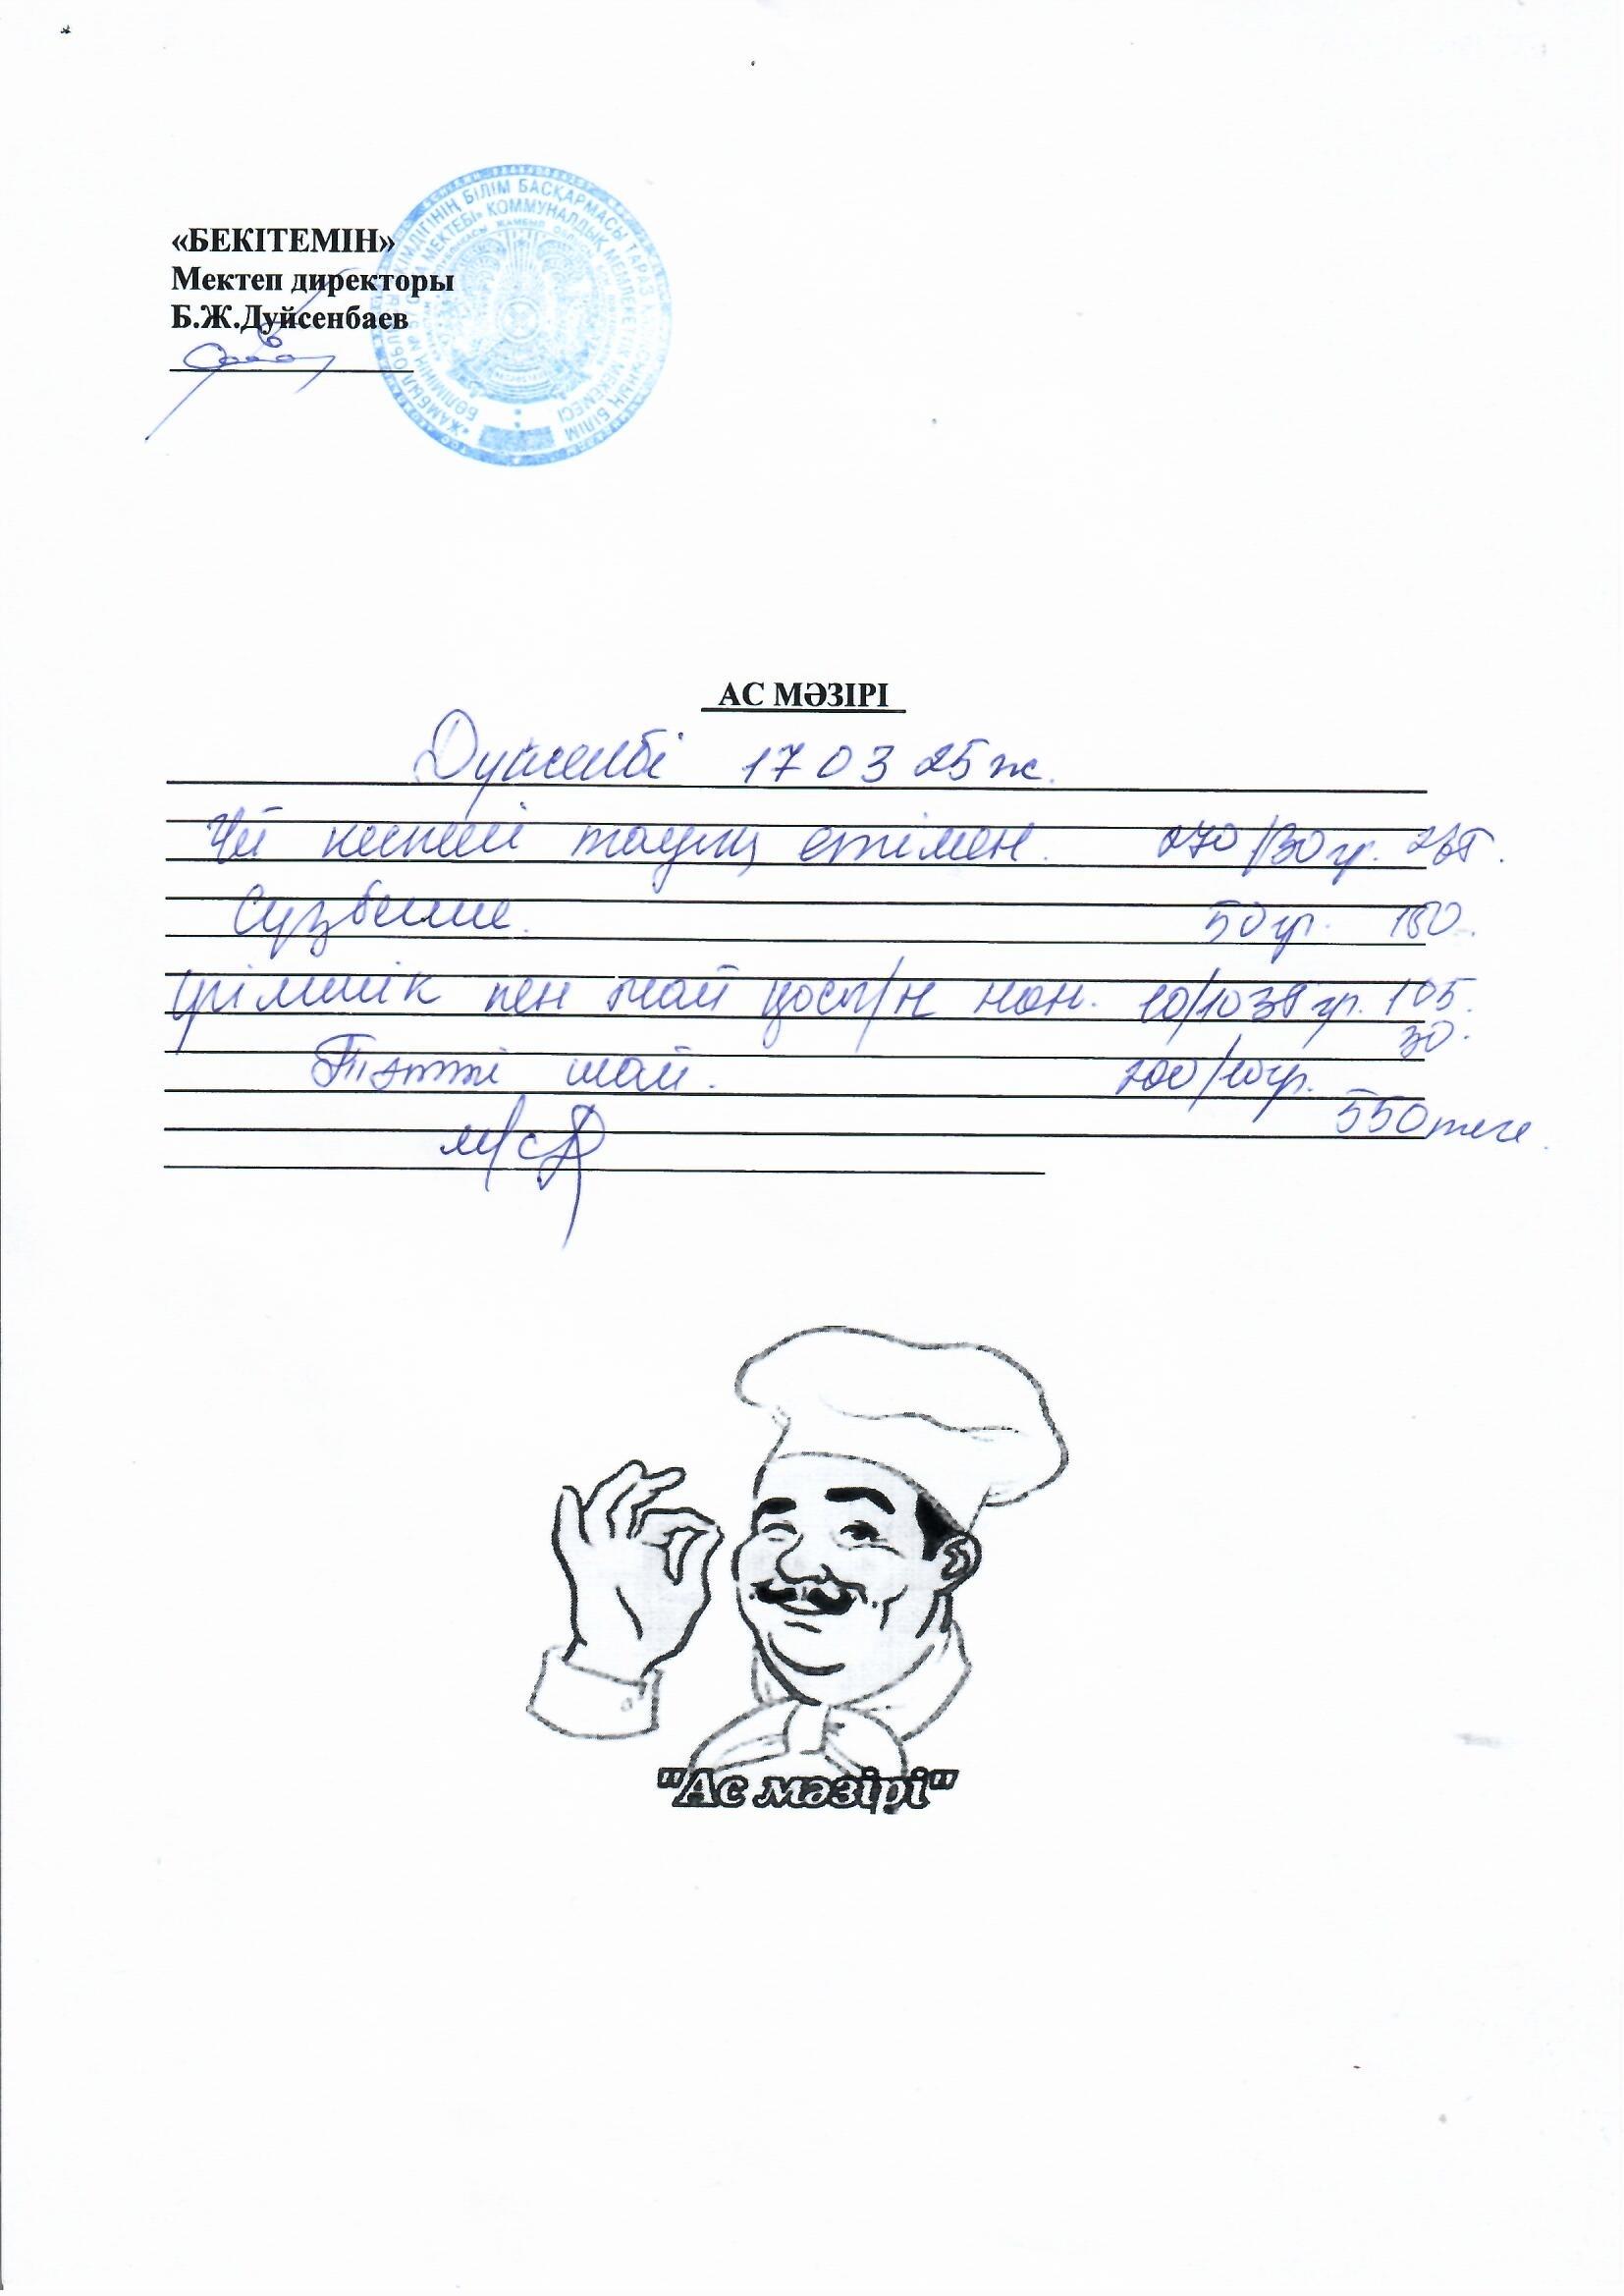 «БЕКІТЕМІН»
Мектеп директоры
Б.Ж.Дуйсенбаев
АС МӘЗІРІ
Дүйсенбі 17 03 25 ж.
Үй кеспесі тауық етімен. 270/30 гр. 265.
Сүзбеше. 50 гр. 150.
Ірімшік пен май қосы/н нан. 10/10 35 гр. 105.
30.
Тәтті шай. 200/10 гр.
550 теңге.
м/с
"Ас мәзірі"